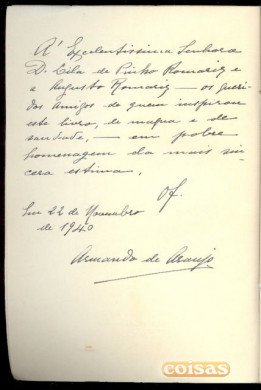 A' Excelentissima Senhora
D. Cila de Pinho Romariz e
a Augusto Romariz — os queri-
dos amigos de quem inspirou
este livro, de mágua e de
saudade, — em pobre
homenagem da mais sin-
cera estima,
Of.
Em 22 de Novembro
de 1940
Armando de Araujo
coisas